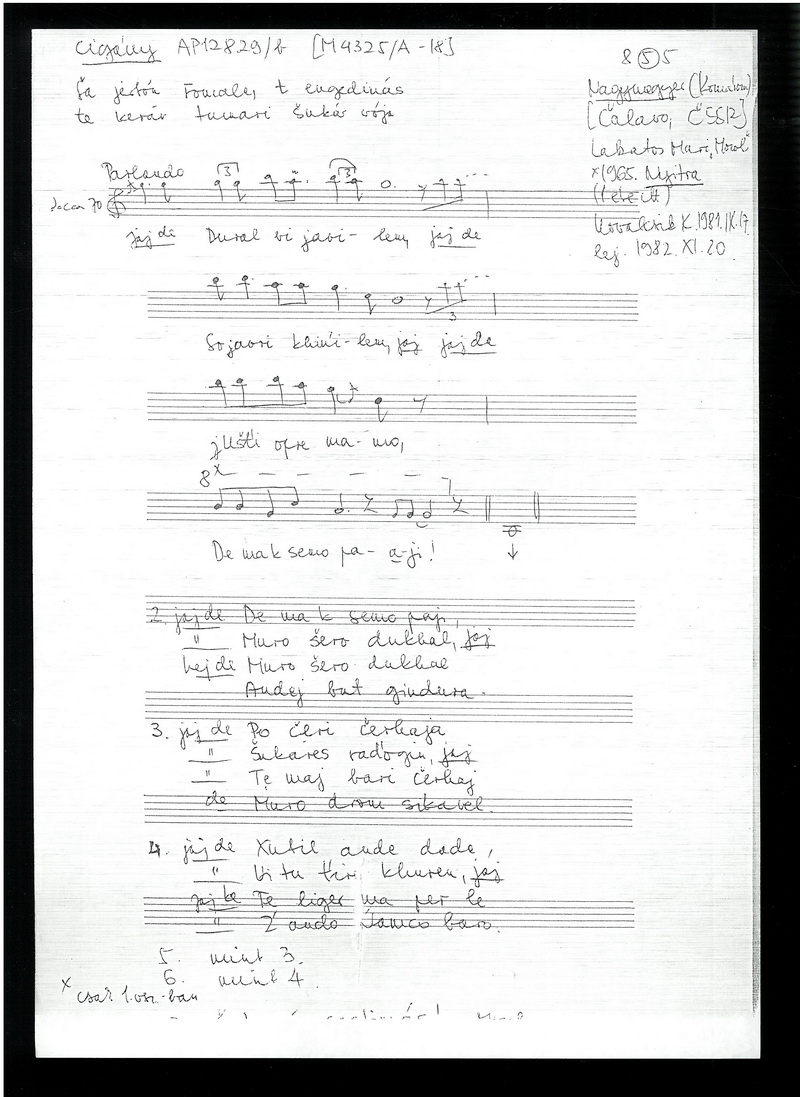 Cigány AP12829/b [M4325/A-18]
8 (5) 5
te keráv tumari šukár vója
Nagymegyer (Komárom)
[Čalavo, ČSSR]
Lakatos Mari
x1965. Nyitra
Kovalcsik K. 1981. IX. 17.
lej. 1982. XI. 20
Parlando
jaj de Dural vi javi-lem, jaj de
So javri khini-lem, jaj jaj de
jUšti opre ma-mo,
8x
De mak semo pa-a-ji!
2. jaj de De mak semo paji,
" Muro šero dukhal, jaj
hej de Muro šero dukhal
Andej but gindura.
3. jaj de Po čeri čerhaja
" Šukáres rad'ogin, jaj
" Te maj bari čerhaj
de Muro drom sikavel.
4. jaj de Xutil ande dade,
" Vi tu tiri khuren, jaj
jaj ke Te liger ma per le
5. mint 3.
6. mint 4.
x csak 1. vsz.-ban